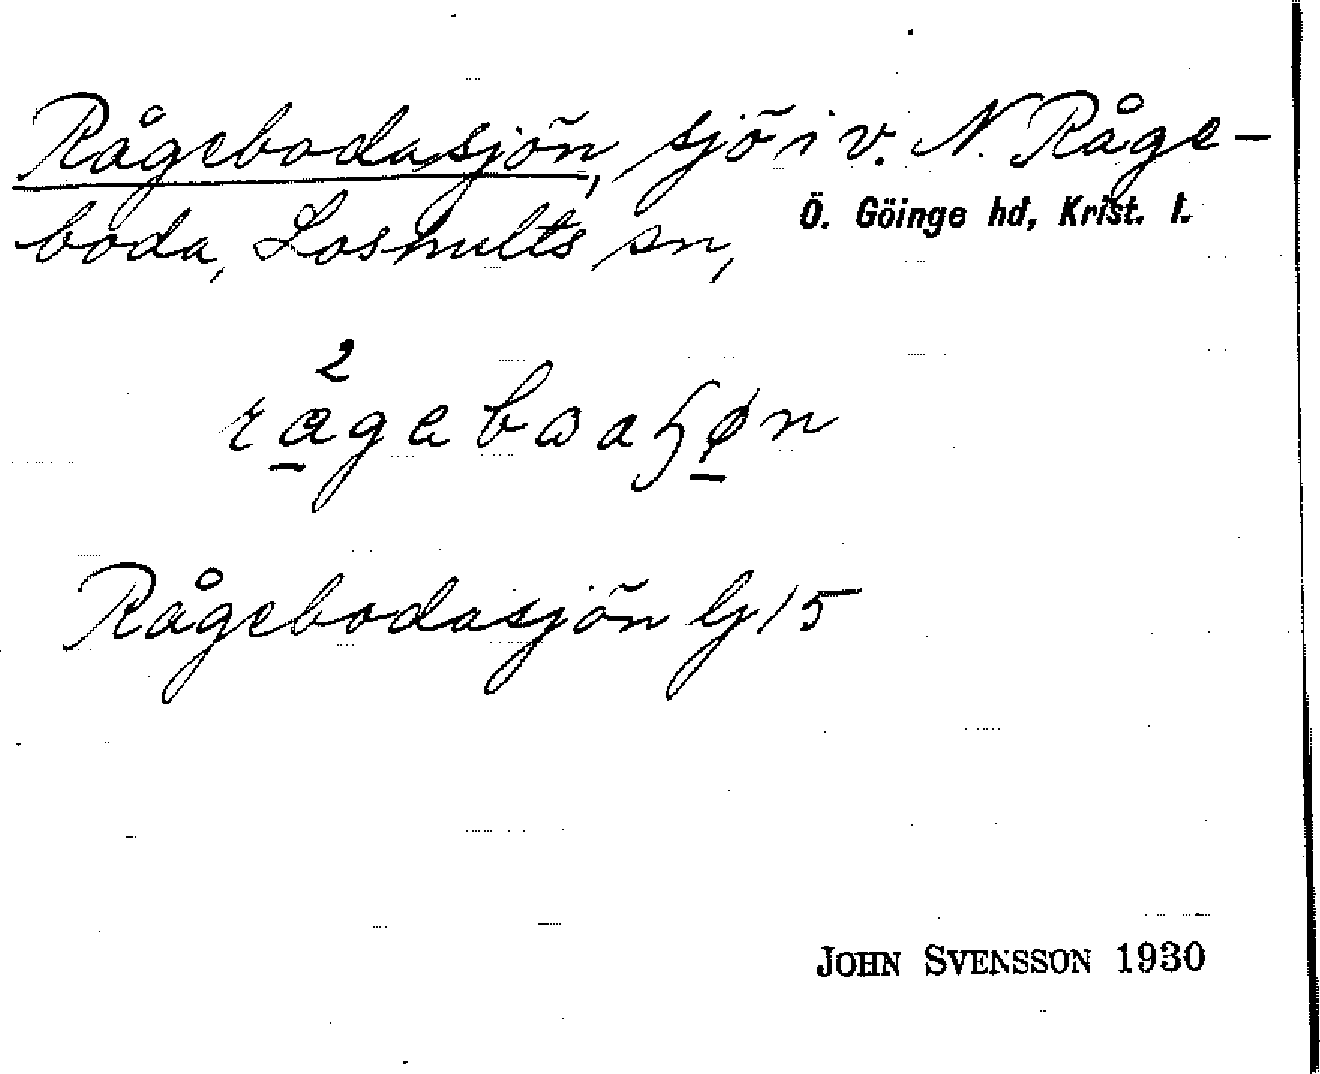 Rågebodasjön, sjö i v. N. Råge-
boda, Loshults sn, Ö. Göinge hd, Krist. l.
2
Rågebodasjön G 15
JOHN SVENSSON 1930